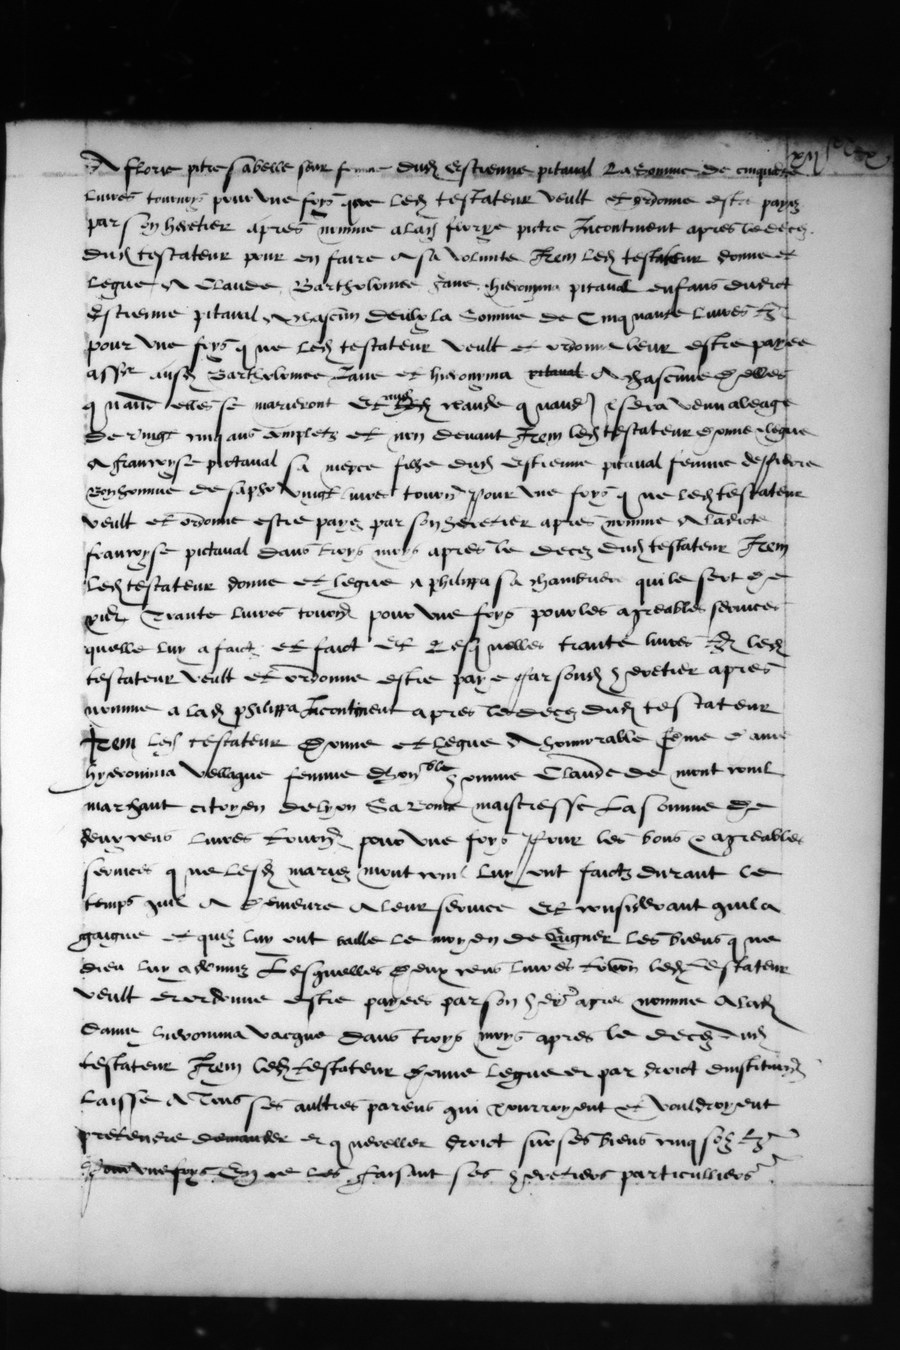 A florie pitre sa belle seur femme dud estienne pitaval La somme de cinquante
livres tournoys pour une foys que led testateur veult et ordonne estre payez
par son heretier apres nomme a lad florye pitre Incontinent apres le decez
dud testateur pour en faire a sa volunte Item led testateur donne et
legue A Claude Bartholomee Jane hieronyma pitaval enfans dudict
Estienne pitaval A chascun deulx la somme de Cinquante livres tz
pour une foys que led testateur veult et ordonne leur estre payee
assr ausd Bartholomee Jane et hieronyma pitaval A chascune delles
quant elles se marieront Et aud claude quand sera venu aleage
de vingt cinq ans completz et non devant Item led testateur donne legue
A francoyse pictaval sa niepce fille dud estienne pitaval femme de pierre
Bonhomme de vingt livres tourn pour une foys que led testateur
veult et ordonne estre payez par son heretier apres nomme A ladicte
francoyse pictaval dans troys moys apres le decez dud testateur Item
led testateur donne et legue a philippa sa chambriere qui le sert de
Trante livres tourn pour une foys pour les agreables services
quelle luy a faict et faict Et Lesquelles trante livres tz led
testateur veult et ordonne estre paye par sond heretier apres
nomme a lad philippa Incontinent apres le decez dud testateur
Item led testateur donne et legue A honnorable feme dame
hyeronima vellaque femme dhonble homme Claude de mont
marchant citoyen de lyon Sa bonne maistresse La somme de
deux cens livres tourn pour une foys Pour les bons & agreables
services que lesd mariez mont luy ont faictz durant le
temps quil A demeure A leur service Et considerant quil a
gaigne et quilz luy ont baille le moyen de gaigner les biens que
dieu luy a donnez Lesquelles deux cens livres tourn led testateur
veult et ordonne estre payees par son her apres nomme A lad
dame hieronima vacque dans troys moys apres le decez dud
testateur Item led testateur donne legue et par droict dinstitution
Laisse A Tous ses aultres parens qui pourroyent et vouldroyent
pretendre demander et quereller droict sur ses biens cinq solz tz
pour une foys En ce les faisant ses heretiers particulliers